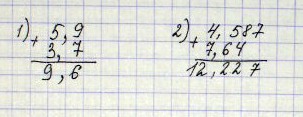 1) + 5,9    2) + 4,587
3,7    7,64
9,6    12,227